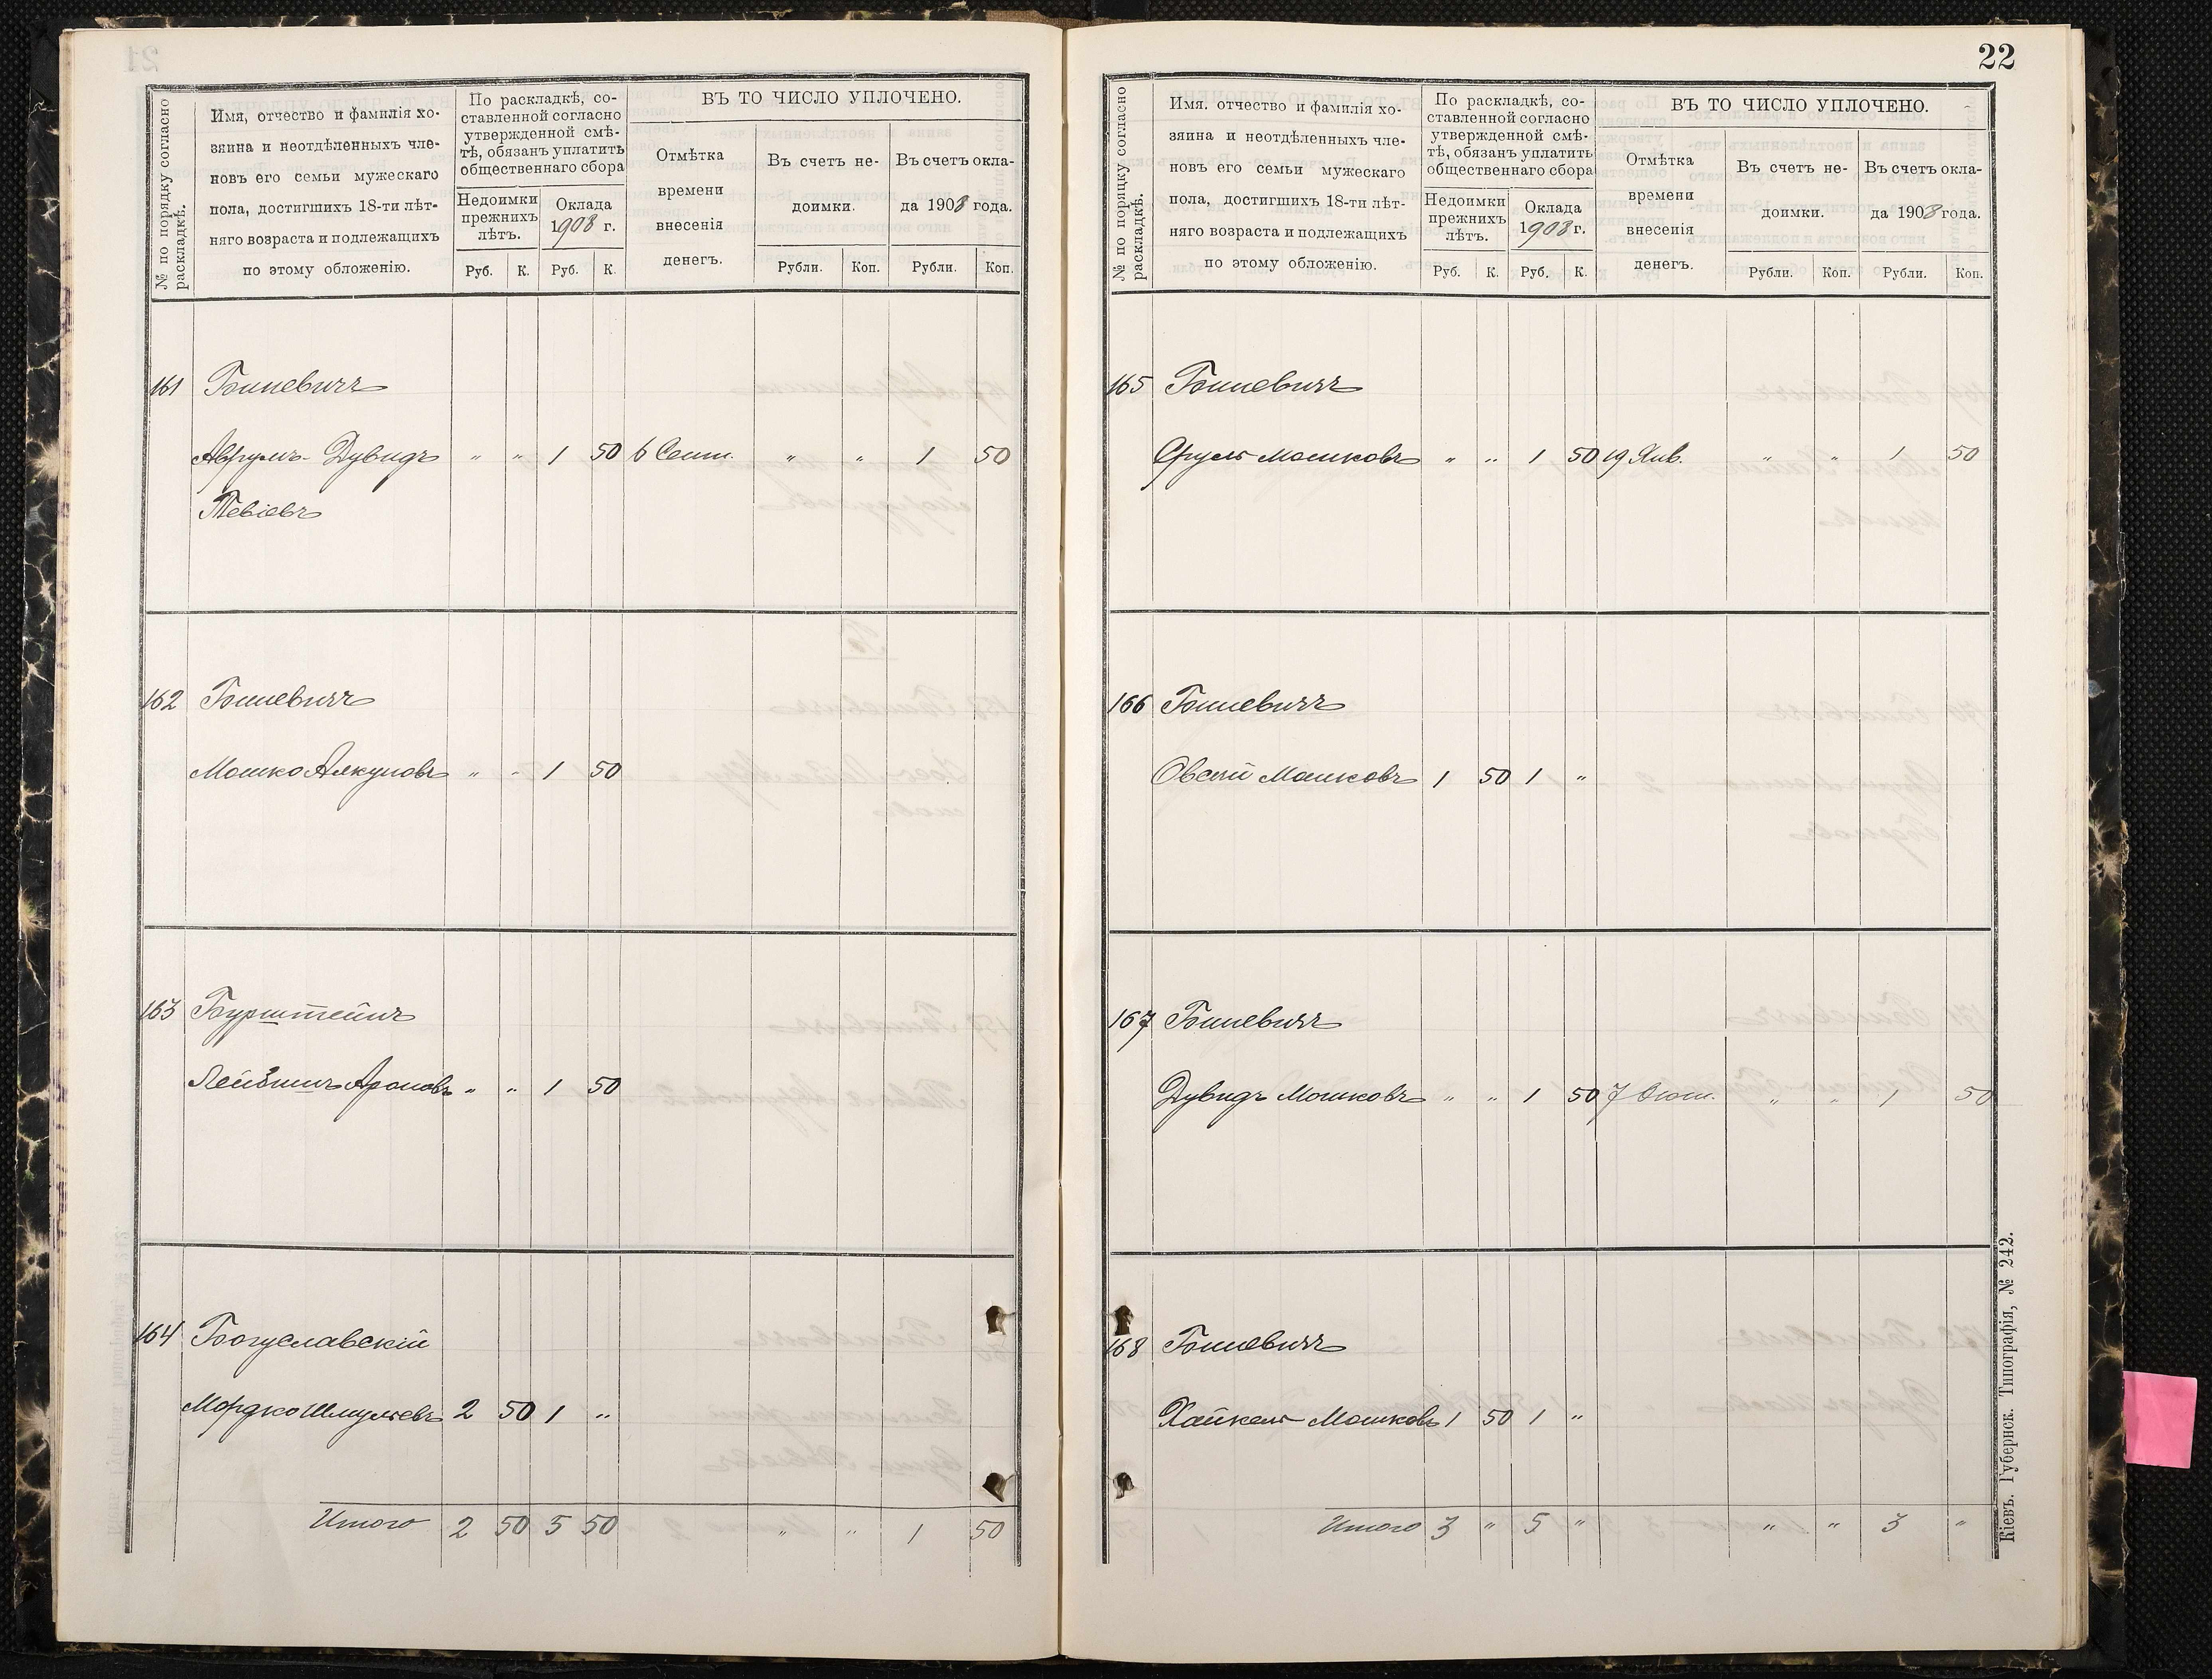 22
№ по порядку согласно раскладкѣ.
Имя, отчество и фамилія хо-
зяина и неотдѣленныхъ чле-
новъ его семьи мужескаго
пола, достигшихъ 18-ти лѣт-
няго возраста и подлежащихъ
по этому обложенію.
По раскладкѣ, со-
ставленной согласно
утвержденной смѣ-
тѣ, обязанъ уплатить
общественнаго сбора
Недоимки
прежнихъ
лѣтъ.
Оклада
1908 г.
Руб. К. Руб. К.
ВЪ ТО ЧИСЛО УПЛОЧЕНО.
Отмѣтка
времени
внесенія
денегъ.
Въ счетъ не-
доимки.
Рубли. Коп.
Въ счетъ окла-
да 1908 года.
Рубли. Коп.
161 Биневичъ
Аврумъ-Дувидъ " " 1 50 6 Сент. " " 1 50
Тевіевъ
162 Биневичъ
Мошко Янкуловъ " " 1 50
163 Бурштейнъ
Лейзеръ Ароновъ " " 1 50
164 Богуславскій
Мордко Шмулевъ 2 50 1 "
Итого 2 50 5 50 " " 1 50
№ по порядку согласно раскладкѣ.
Имя. отчество и фамилія хо-
зяина и неотдѣленныхъ чле-
новъ его семьи мужескаго
пола, достигшихъ 18-ти лѣт-
няго возраста и подлежащихъ
по этому обложенію.
По раскладкѣ, со-
ставленной согласно
утвержденной смѣ-
тѣ, обязанъ уплатить
общественнаго сбора
Недоимки
прежнихъ
лѣтъ.
Оклада
1908 г.
Руб. К. Руб. К.
ВЪ ТО ЧИСЛО УПЛОЧЕНО.
Отмѣтка
времени
внесенія
денегъ.
Въ счетъ не-
доимки.
Рубли. Коп.
Въ счетъ окла-
да 1908 года.
Рубли. Коп.
165 Биневичъ
Сруль Мошковъ " " 1 50 19 Янв. " " 1 50
166 Биневичъ
Овсей Мошковъ 1 50 1 "
167 Биневичъ
Дувидъ Мошковъ " " 1 50 7 " " 1 50
168 Биневичъ
Хайкель Мошковъ 1 50 1 "
Итого 3 " 5 " " " 3 "
Кіевъ. Губернск. Типографія, № 242.